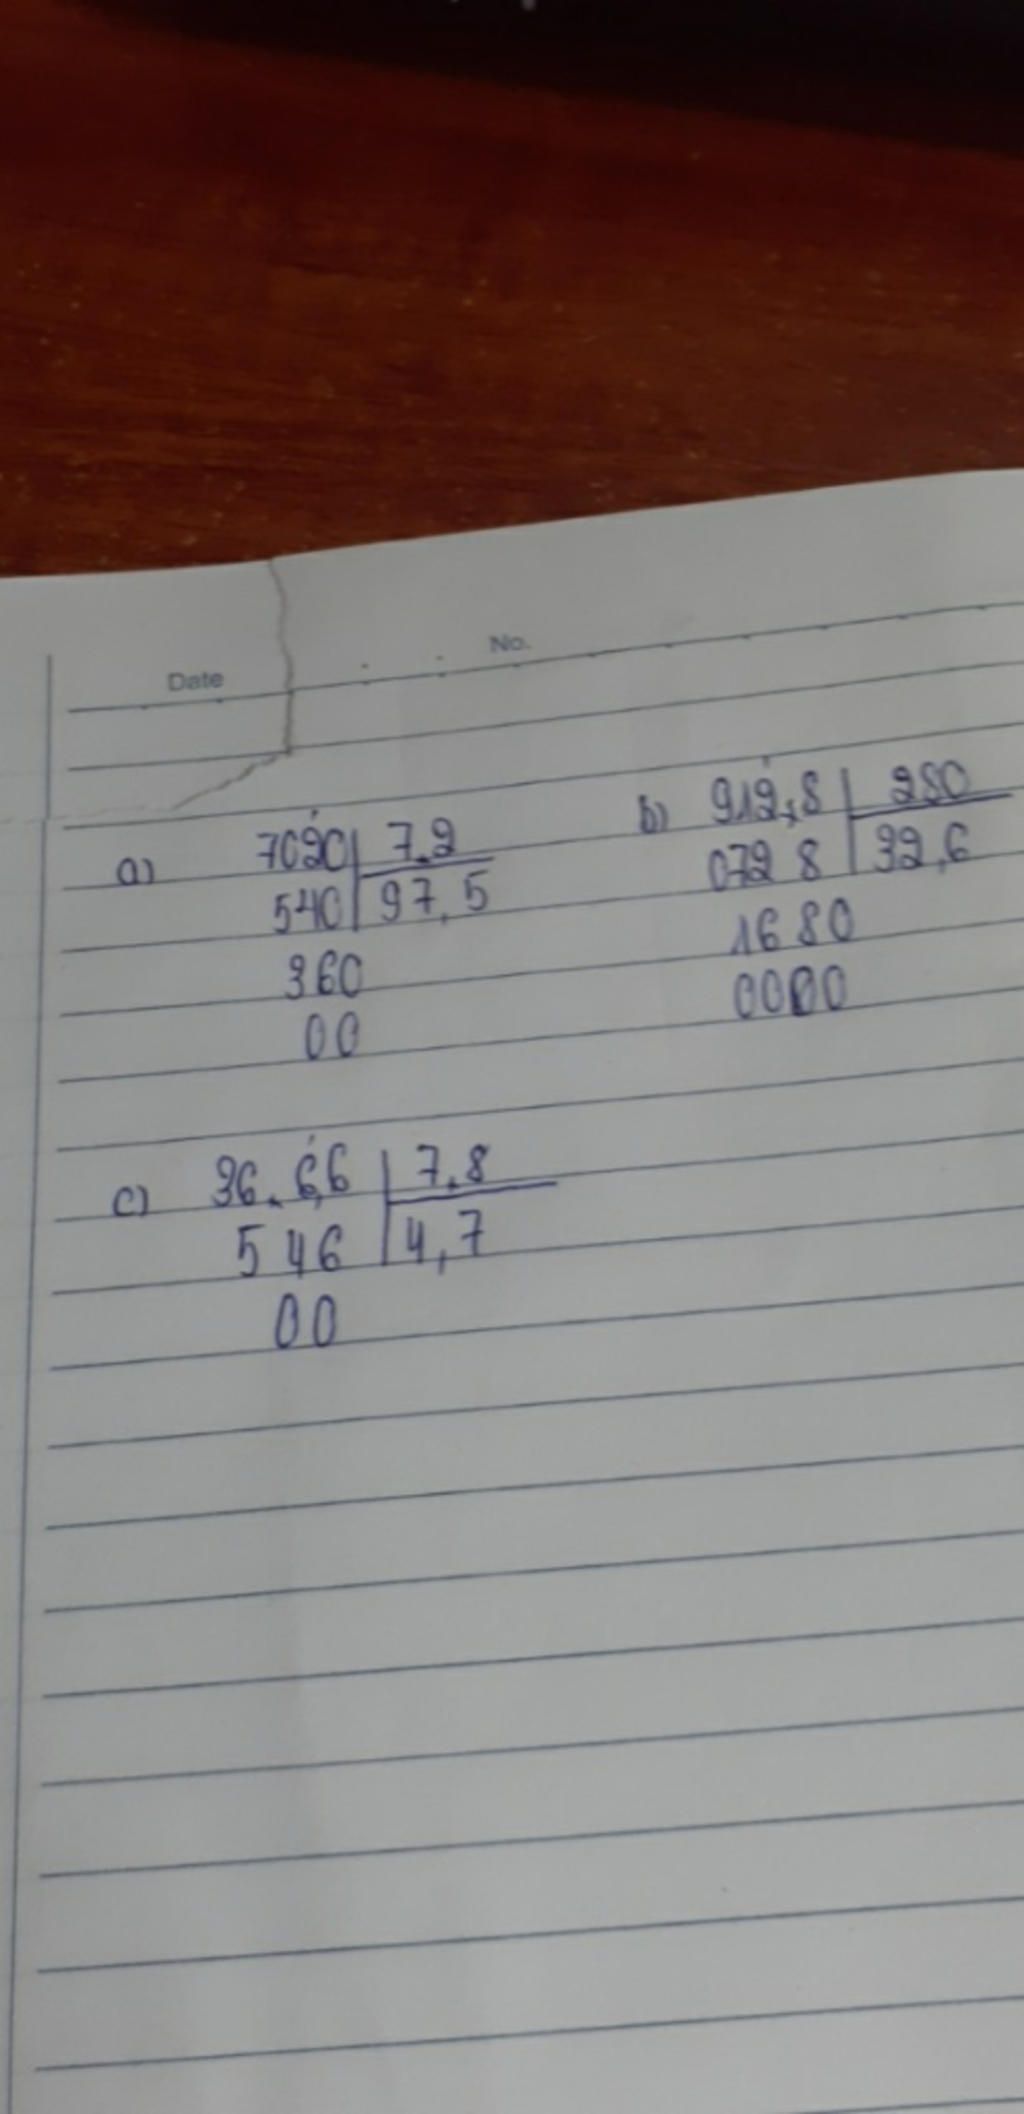 Date
No.
a) 7020 | 7.2
540 | 97,5
360
00
b) 912,8 | 280
072 8 | 32,6
1680
0000
c) 36.6,6 | 7.8
546 | 4,7
00